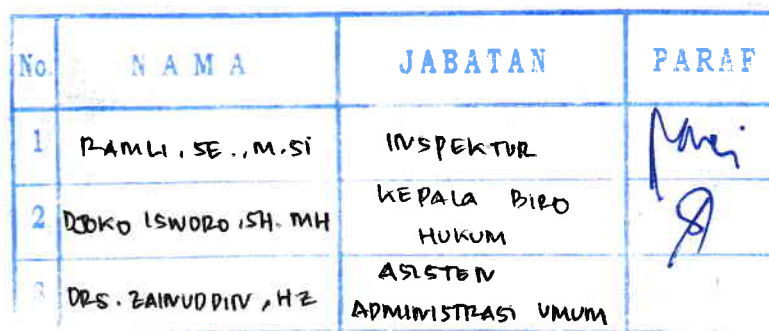 No. NAMA JABATAN PARAF
1 RAMLI, SE., M.Si INSPEKTUR
2 DJOKO ISWORO, SH. MH KEPALA BIRO
HUKUM
3 DRS. ZAINUDDIN, HZ ASISTEN
ADMINISTRASI UMUM